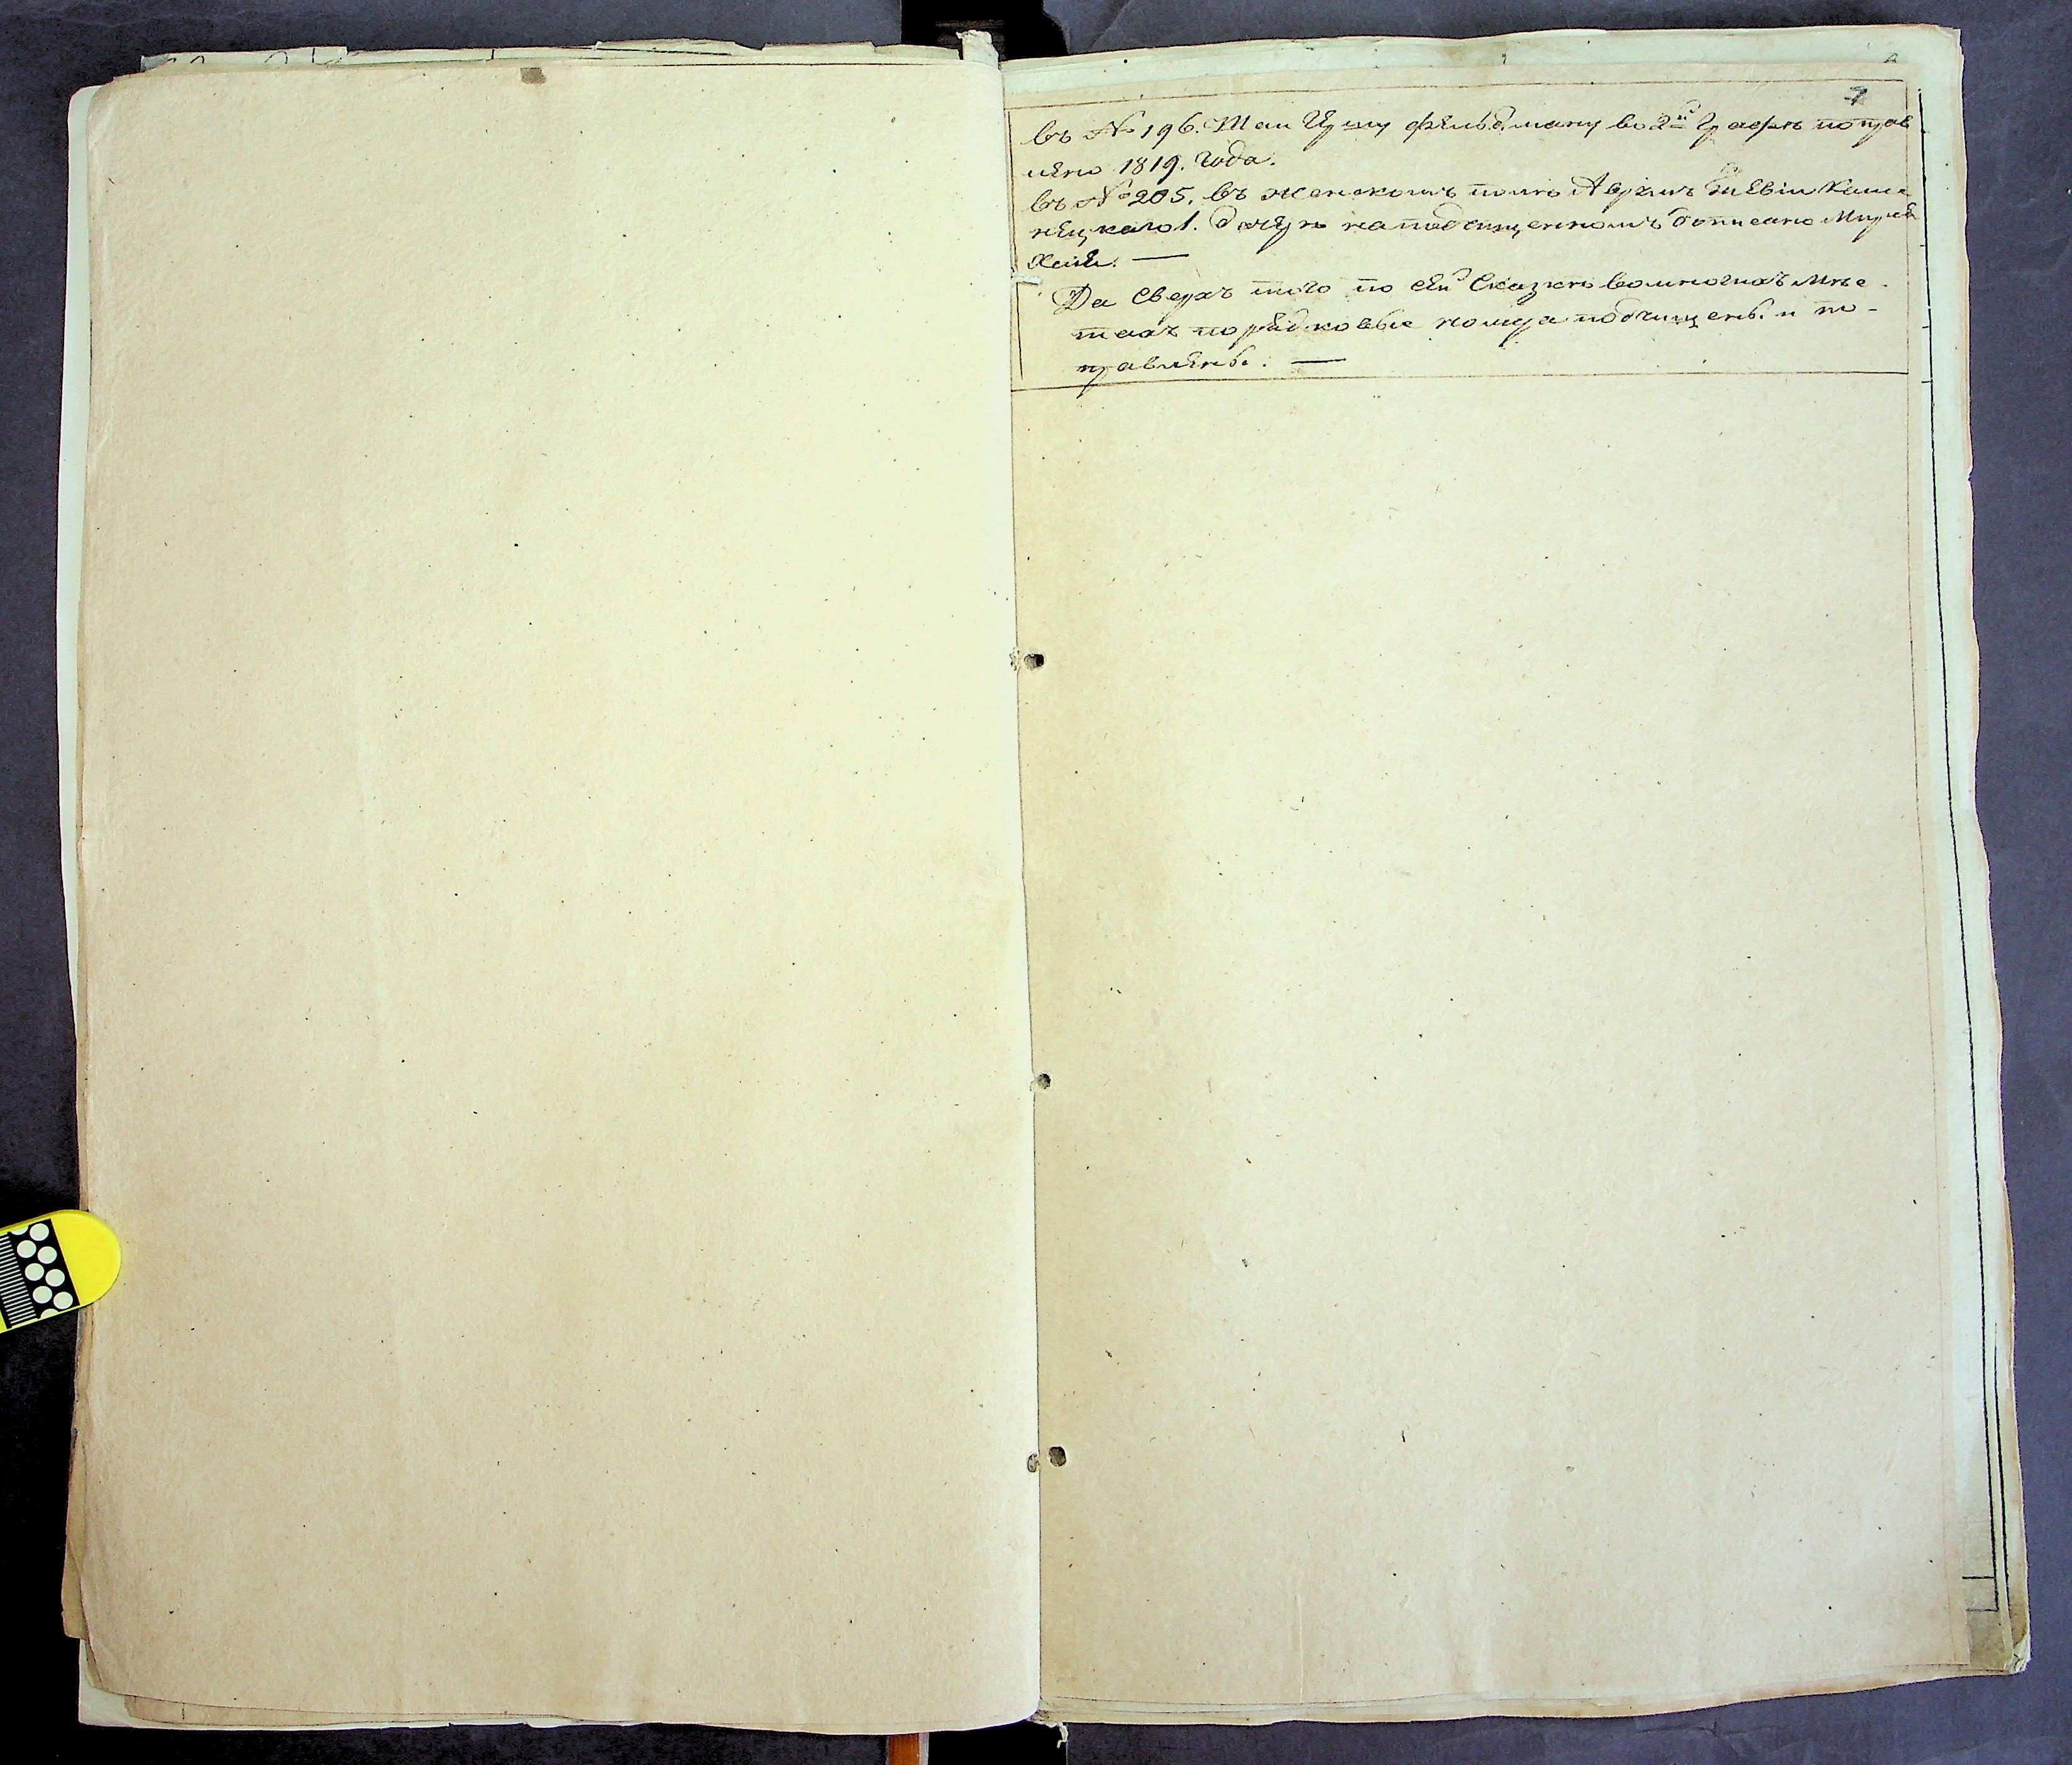 7
въ № 196. Фельдману во 2й Графѣ поправ
лено 1819. года.
въ № 205. въ женскомъ полѣ Каме
нецкаго 1. дочерь на подчищенномъ дописано
Да Сверхъ того по сей Сказкѣ вомногихъ мѣс
тахъ порядковые номера подчищены и по-
правлены. —